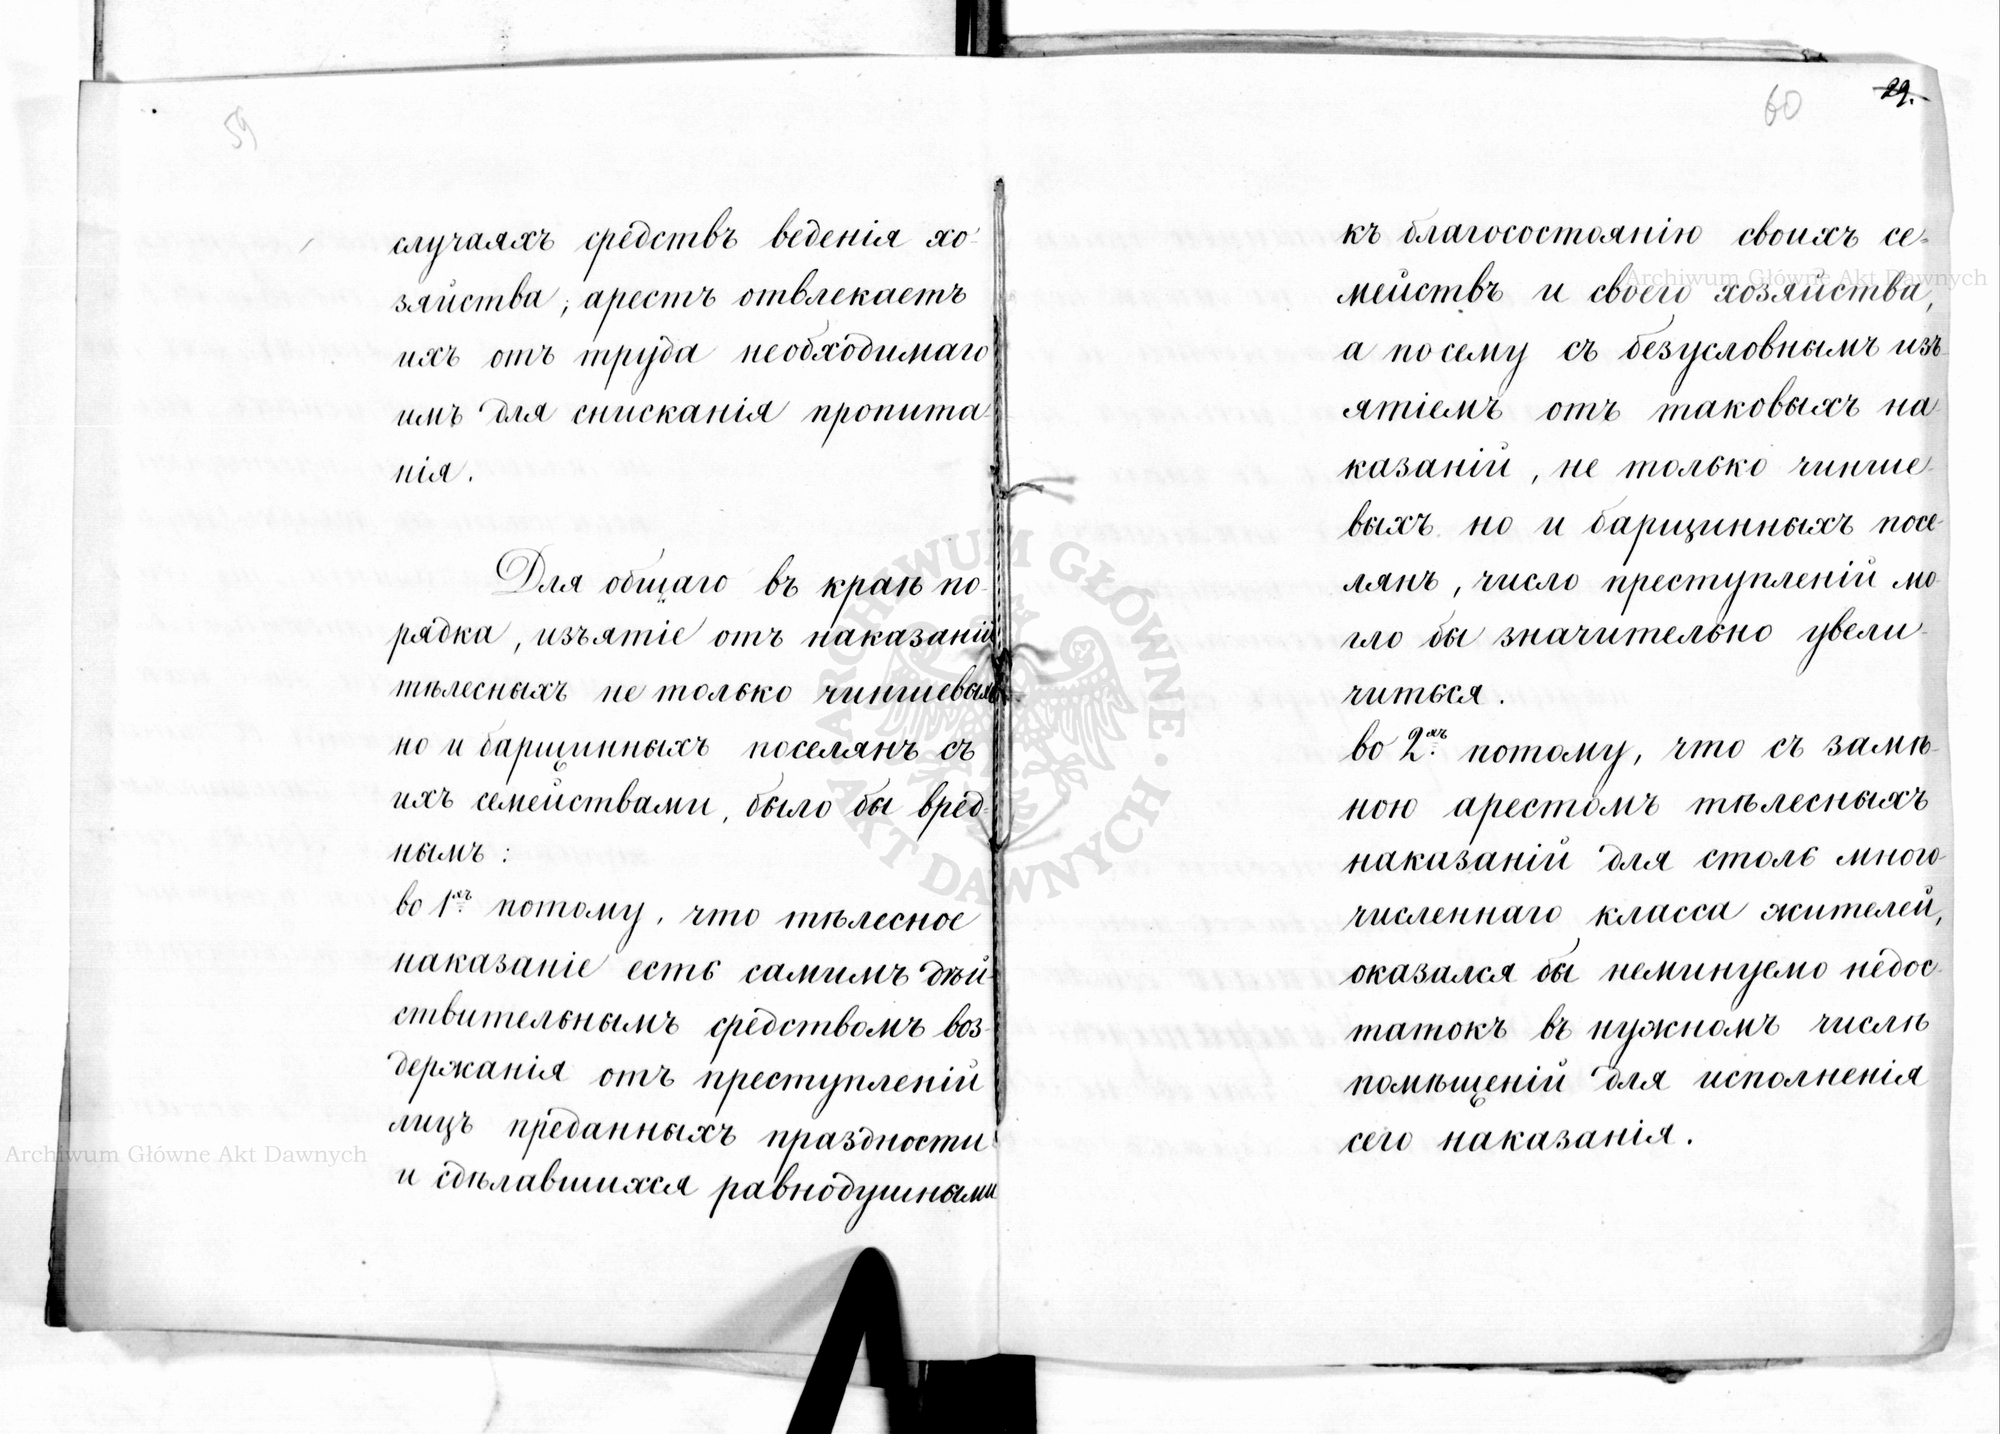 59
случаяхъ средствъ веденія хо-
зяйства; арестъ отвлекаетъ
ихъ отъ труда необходимаго
имъ для снисканія пропита-
нія.
Для общаго въ краѣ по-
рядка, изъятіе отъ наказаній
тѣлесныхъ не только чиншевыхъ
но и барщинныхъ поселянъ съ
ихъ семействами, было бы вред-
нымъ:
во 1хъ потому, что тѣлесное
наказаніе есть самимъ дѣй-
ствительнымъ средствомъ воз-
держанія отъ преступленій
лицъ преданныхъ праздности
и сдѣлавшихся равнодушными
60
29.
къ благосостоянію своихъ се-
мействъ и своего хозяйства,
а по сему съ безусловнымъ изъ-
ятіемъ отъ таковыхъ на-
казаній, не только чинше-
выхъ но и барщинныхъ посе-
лянъ, число преступленій мо-
гло бы значительно увели-
читься.
во 2хъ потому, что съ замѣ-
ною арестомъ тѣлесныхъ
наказаній для столь много-
численнаго класса жителей,
оказался бы неминуемо недос-
татокъ въ нужномъ числѣ
помѣщеній для исполненія
сего наказанія.
ARCHIWUM GŁÓWNE AKT DAWNYCH
Archiwum Główne Akt Dawnych
Archiwum Główne Akt Dawnych